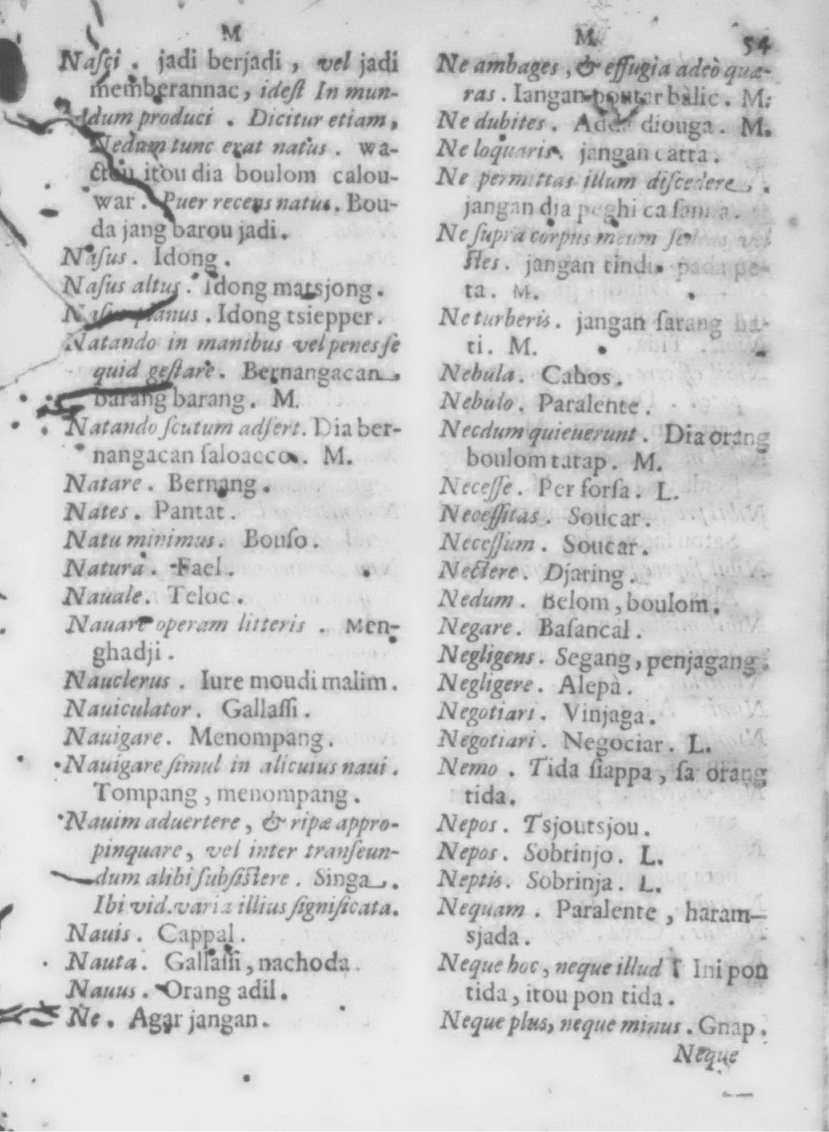 M
Naſci. jadi berjadi, vel jadi
memberannac, ideſt In mun-
dum produci. Dicitur etiam,
Nedum tunc erat natus. wa-
ctou itou dia boulom calou-
war. Puer recens natus. Bou-
da jang barou jadi.
Naſus. Idong.
Naſus altus. Idong matsjong.
Naſus planus. Idong tsiepper.
Natando in manibus vel penes ſe
quid geſtare. Bernangacan
barang barang. M.
Natando ſcutum adfert. Dia ber-
nangacan ſaloacco. M.
Natare. Bernang.
Nates. Pantat.
Natu minimus. Bonſo.
Natura. Fael.
Nauale. Teloc.
Nauare operam litteris. Men-
ghadji.
Nauclerus. Iure moudi malim.
Nauiculator. Gallaſſi.
Nauigare. Menompang.
Nauigare ſimul in alicuius naui.
Tompang, menompang.
Nauim aduertere, & ripæ appro-
pinquare, vel inter tranſeun-
dum alibi ſubſiſtere. Singa.
Ibi vid. varia illius ſignificata.
Nauis. Cappal.
Nauta. Gallaſſi, nachoda.
Nauus. Orang adil.
Ne. Agar jangan.
M 54
Ne ambages, & effugia adeò quæ-
ras. Iangan poutar balic. M.
Ne dubites. diouga. M.
Ne loquaris. jangan catta.
Ne permittas illum diſcedere,
jangan dia peghi ca
Ne ſupra corpus meum vel
ſtes. jangan tindis pada pe-
ta. M.
Ne turberis. jangan ſarang ha-
ti. M.
Nebula. Cabos.
Nebulo. Paralente.
Necdum quieuerunt. Dia orang
boulom tatap. M.
Neceſſe. Per forſa. L.
Neceſſitas. Soucar.
Neceſſum. Soucar.
Nectere. Djaring.
Nedum. Belom, boulom.
Negare. Baſancal.
Negligens. Segang, penjagang.
Negligere. Alepà.
Negotiari. Vinjaga.
Negotiari. Negociar. L.
Nemo. Tida ſiappa, ſa orang
tida.
Nepos. Tsjoutsjou.
Nepos. Sobrinjo. L.
Neptis. Sobrinja. L.
Nequam. Paralente, haram-
sjada.
Neque hoc, neque illud. Ini pon
tida, itou pon tida.
Neque plus, neque minus. Gnap.
Neque